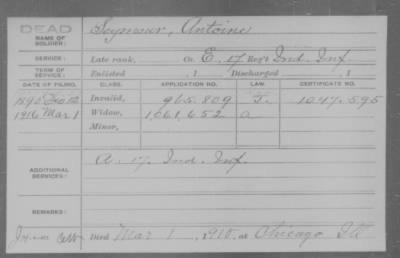 DEAD
NAME OF SOLDIER: Seymour, Antoine
SERVICE: Late rank, Co. E, 17 Reg't Ind. Inf.
TERM OF SERVICE: Enlisted , 1 Discharged , 1
DATE OF FILING. CLASS. APPLICATION NO. LAW. CERTIFICATE NO.
1890 Invalid, 965.809 1047.595
1916 Mar 1 Widow, 1,061,652 a
Minor,
ADDITIONAL SERVICES: A. 17. Ind. Inf.
REMARKS:
Died Mar 1, 1910, at Chicago Ill